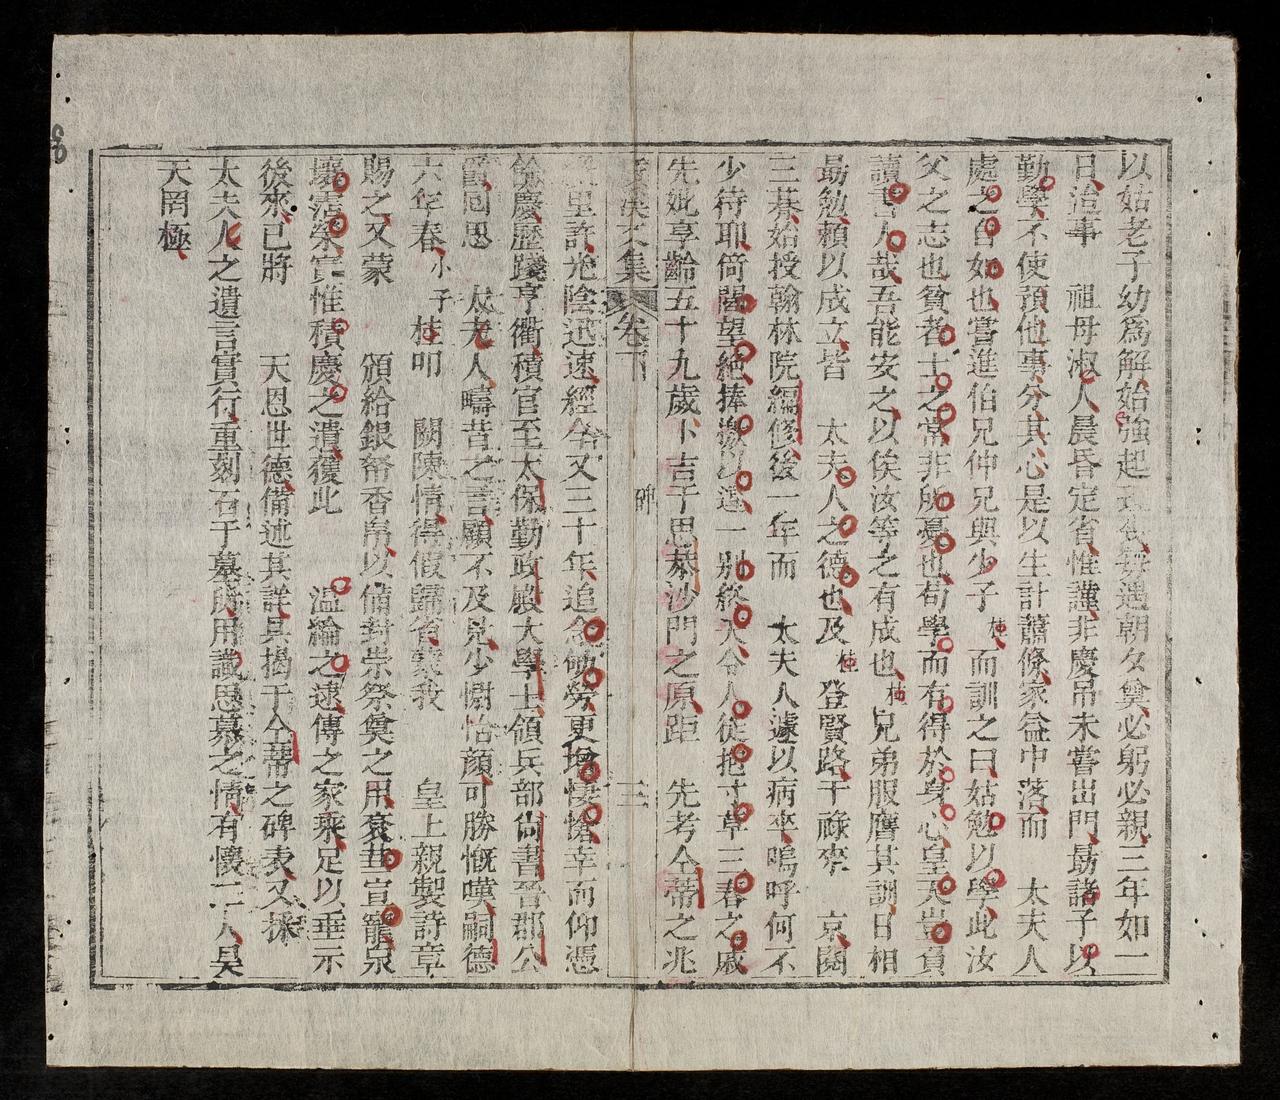 以姑老子幼爲解始強起 每遇朝夕奠必躬必親三年如一
日治事 祖母淑人晨昏定省惟謹非慶吊未嘗出門勗諸子以
勤學不使預他事分其心是以生計蕭條家益中落而 太夫人
處之自如也嘗進伯兄仲兄與少子桂而訓之曰姑勉以學此汝
父之志也貧者士之常非所憂也苟學而有得於身心皇天豈負
讀書人哉吾能安之以俟汝等之有成也桂兄弟服膺其訓日相
勗勉賴以成立皆 太夫人之德也及桂登賢路干祿來 京闕
三朞始授翰林院編修後一年而 太夫人遽以病卒嗚呼何不
少待耶倚閭望絶捧檄 違一別終天令人徒抱寸草三春之戚
先妣享齡五十九歲卜吉于思恭沙門之原距 先考仝蒂之兆
文集 卷下 碑 三
里許光陰迅速經今又三十年追念劬勞更增悽愴幸而仰憑
餘慶歷踐亨衢積官至太保勤政殿大學士領兵部尚書晉郡公
囘思 太夫人疇昔之言顯不及見少慰怡顏可勝慨嘆嗣德
六年春小子桂叩 闕陳情得假歸省蒙我 皇上親製詩章
賜之又蒙 頒給銀幣香帛以備封崇祭奠之用袞華宣寵泉
壤霑榮實惟積慶之遺獲此 溫綸之逮傳之家乘足以垂示
後來已將 天恩世德備述其詳具揭于仝蒂之碑表又採
太夫人之遺言實行重刻石于墓所用識思慕之情有懷二人昊
天罔極